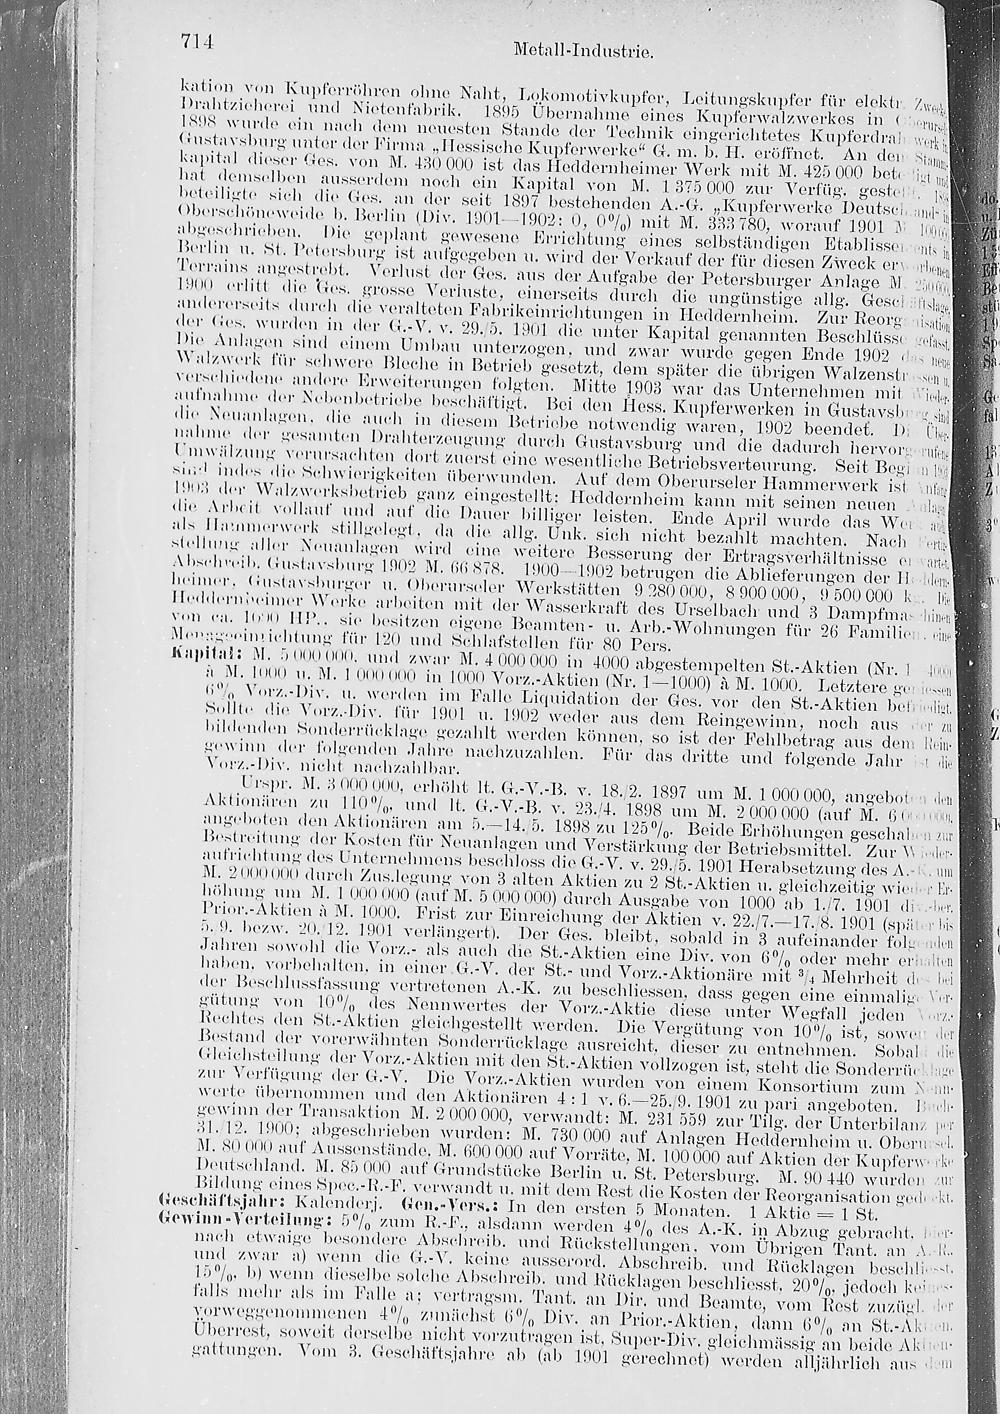 714
Metall-Industrie.
kation von Kupferröhren ohne Naht, Lokomotivkupfer, Leitungskupfer für elektr. Zwecke,
Drahtzieherei und Nietenfabrik. 1895 Übernahme eines Kupferwalzwerkes in Oberursel.
1898 wurde ein nach dem neuesten Stande der Technik eingerichtetes Kupferdrahtwerk in
Gustavsburg unter der Firma „Hessische Kupferwerke“ G. m. b. H. eröffnet. An dem Stamm-
kapital dieser Ges. von M. 430 000 ist das Heddernheimer Werk mit M. 425 000 beteiligt und
hat demselben ausserdem noch ein Kapital von M. 1 375 000 zur Verfüg. gestellt.
beteiligte sich die Ges. an der seit 1897 bestehenden A.-G. „Kupferwerke Deutschland“ in
Oberschöneweide b. Berlin (Div. 1901—1902: 0, 0%) mit M. 333 780, worauf 1901 M.
abgeschrieben. Die geplant gewesene Errichtung eines selbständigen Etablissements in
Berlin u. St. Petersburg ist aufgegeben u. wird der Verkauf der für diesen Zweck erworbenen
Terrains angestrebt. Verlust der Ges. aus der Aufgabe der Petersburger Anlage M. 250 000.
1900 erlitt die Ges. grosse Verluste, einerseits durch die ungünstige allg. Geschäftslage,
andererseits durch die veralteten Fabrikeinrichtungen in Heddernheim. Zur Reorganisation
der Ges. wurden in der G.-V. v. 29./5. 1901 die unter Kapital genannten Beschlüsse gefasst.
Die Anlagen sind einem Umbau unterzogen, und zwar wurde gegen Ende 1902 das neue
Walzwerk für schwere Bleche in Betrieb gesetzt, dem später die übrigen Walzenstrassen u.
verschiedene andere Erweiterungen folgten. Mitte 1903 war das Unternehmen mit Wieder-
aufnahme der Nebenbetriebe beschäftigt. Bei den Hess. Kupferwerken in Gustavsburg sind
die Neuanlagen, die auch in diesem Betriebe notwendig waren, 1902 beendet. Die Über-
nahme der gesamten Drahterzeugung durch Gustavsburg und die dadurch hervorgerufene
Umwälzung verursachten dort zuerst eine wesentliche Betriebsverteurung. Seit Beginn
sind indes die Schwierigkeiten überwunden. Auf dem Oberurseler Hammerwerk ist Anfang
1903 der Walzwerksbetrieb ganz eingestellt: Heddernheim kann mit seinen neuen Anlagen
die Arbeit vollauf und auf die Dauer billiger leisten. Ende April wurde das Werk auch
als Hammerwerk stillgelegt, da die allg. Unk. sich nicht bezahlt machten. Nach Fertig-
stellung aller Neuanlagen wird eine weitere Besserung der Ertragsverhältnisse erwartet.
Abschreib. Gustavsburg 1902 M. 66 878. 1900—1902 betrugen die Ablieferungen der Heddern-
heimer, Gustavsburger u. Oberurseler Werkstätten 9 280 000, 8 900 000, 9 500 000 kg. Die
Heddernheimer Werke arbeiten mit der Wasserkraft des Urselbach und 3 Dampfmaschinen
von ca. 1000 HP., sie besitzen eigene Beamten- u. Arb.-Wohnungen für 26 Familien, eine
Menageeinrichtung für 120 und Schlafstellen für 80 Pers.
Kapital: M. 5 000 000, und zwar M. 4 000 000 in 4000 abgestempelten St.-Aktien (Nr. 1—4000)
à M. 1000 u. M. 1 000 000 in 1000 Vorz.-Aktien (Nr. 1—1000) à M. 1000. Letztere geniessen
6% Vorz.-Div. u. werden im Falle Liquidation der Ges. vor den St.-Aktien befriedigt.
Sollte die Vorz.-Div. für 1901 u. 1902 weder aus dem Reingewinn, noch aus der zu
bildenden Sonderrücklage gezahlt werden können, so ist der Fehlbetrag aus dem Rein-
gewinn der folgenden Jahre nachzuzahlen. Für das dritte und folgende Jahr ist die
Vorz.-Div. nicht nachzahlbar.
Urspr. M. 3 000 000, erhöht lt. G.-V.-B. v. 18./2. 1897 um M. 1 000 000, angeboten den
Aktionären zu 110%, und lt. G.-V.-B. v. 23./4. 1898 um M. 2 000 000 (auf M. 6 000 000),
angeboten den Aktionären am 5.—14./5. 1898 zu 125%. Beide Erhöhungen geschahen zur
Bestreitung der Kosten für Neuanlagen und Verstärkung der Betriebsmittel. Zur Wieder-
aufrichtung des Unternehmens beschloss die G.-V. v. 29./5. 1901 Herabsetzung des A.-K. um
M. 2 000 000 durch Zus.legung von 3 alten Aktien zu 2 St.-Aktien u. gleichzeitig wieder Er-
höhung um M. 1 000 000 (auf M. 5 000 000) durch Ausgabe von 1000 ab 1./7. 1901 div.-ber.
Prior.-Aktien à M. 1000. Frist zur Einreichung der Aktien v. 22./7.—17./8. 1901 (später bis
5./9. bezw. 20./12. 1901 verlängert). Der Ges. bleibt, sobald in 3 aufeinander folgenden
Jahren sowohl die Vorz.- als auch die St.-Aktien eine Div. von 6% oder mehr erhalten
haben, vorbehalten, in einer G.-V. der St.- und Vorz.-Aktionäre mit 3/4 Mehrheit des bei
der Beschlussfassung vertretenen A.-K. zu beschliessen, dass gegen eine einmalige Ver-
gütung von 10% des Nennwertes der Vorz.-Aktie diese unter Wegfall jeden Vorz.-
Rechtes den St.-Aktien gleichgestellt werden. Die Vergütung von 10% ist, soweit der
Bestand der vorerwähnten Sonderrücklage ausreicht, dieser zu entnehmen. Sobald die
Gleichstellung der Vorz.-Aktien mit den St.-Aktien vollzogen ist, steht die Sonderrücklage
zur Verfügung der G.-V. Die Vorz.-Aktien wurden von einem Konsortium zum Nenn-
werte übernommen und den Aktionären 4 : 1 v. 6.—25./9. 1901 zu pari angeboten. Buch-
gewinn der Transaktion M. 2 000 000, verwandt: M. 231 559 zur Tilg. der Unterbilanz per
31./12. 1900; abgeschrieben wurden: M. 730 000 auf Anlagen Heddernheim u. Oberursel,
M. 80 000 auf Aussenstände, M. 600 000 auf Vorräte, M. 100 000 auf Aktien der Kupferwerke
Deutschland, M. 85 000 auf Grundstücke Berlin u. St. Petersburg. M. 90 440 wurden zur
Bildung eines Spec.-R.-F. verwandt u. mit dem Rest die Kosten der Reorganisation gedeckt.
Geschäftsjahr: Kalenderj. Gen.-Vers.: In den ersten 5 Monaten. 1 Aktie = 1 St.
Gewinn-Verteilung: 5% zum R.-F., alsdann werden 4% des A.-K. in Abzug gebracht, hier-
nach etwaige besondere Abschreib. und Rückstellungen, vom Übrigen Tant. an A.-R.,
und zwar a) wenn die G.-V. keine ausserord. Abschreib. und Rücklagen beschliesst,
15%, b) wenn dieselbe solche Abschreib. und Rücklagen beschliesst, 20%, jedoch keines-
falls mehr als im Falle a; vertragsm. Tant. an Dir. und Beamte, vom Rest zuzügl. der
vorweggenommenen 4% zunächst 6% Div. an Prior.-Aktien, dann 6% an St.-Aktien.
Überrest, soweit derselbe nicht vorzutragen ist, Super-Div. gleichmässig an beide Aktien-
gattungen. Vom 3. Geschäftsjahre ab (ab 1901 gerechnet) werden alljährlich aus dem